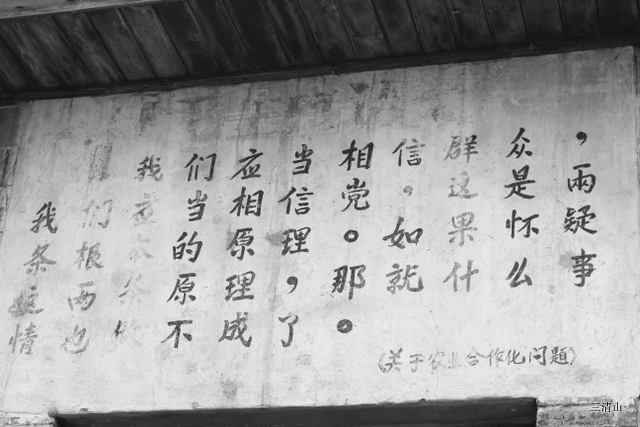 我们应当相信群众，
我们应当相信党。这是兩
条根本的原理。如果怀疑
这两条原理，那就什么事
情也做不成了。
《关于农业合作化问题》
三清山